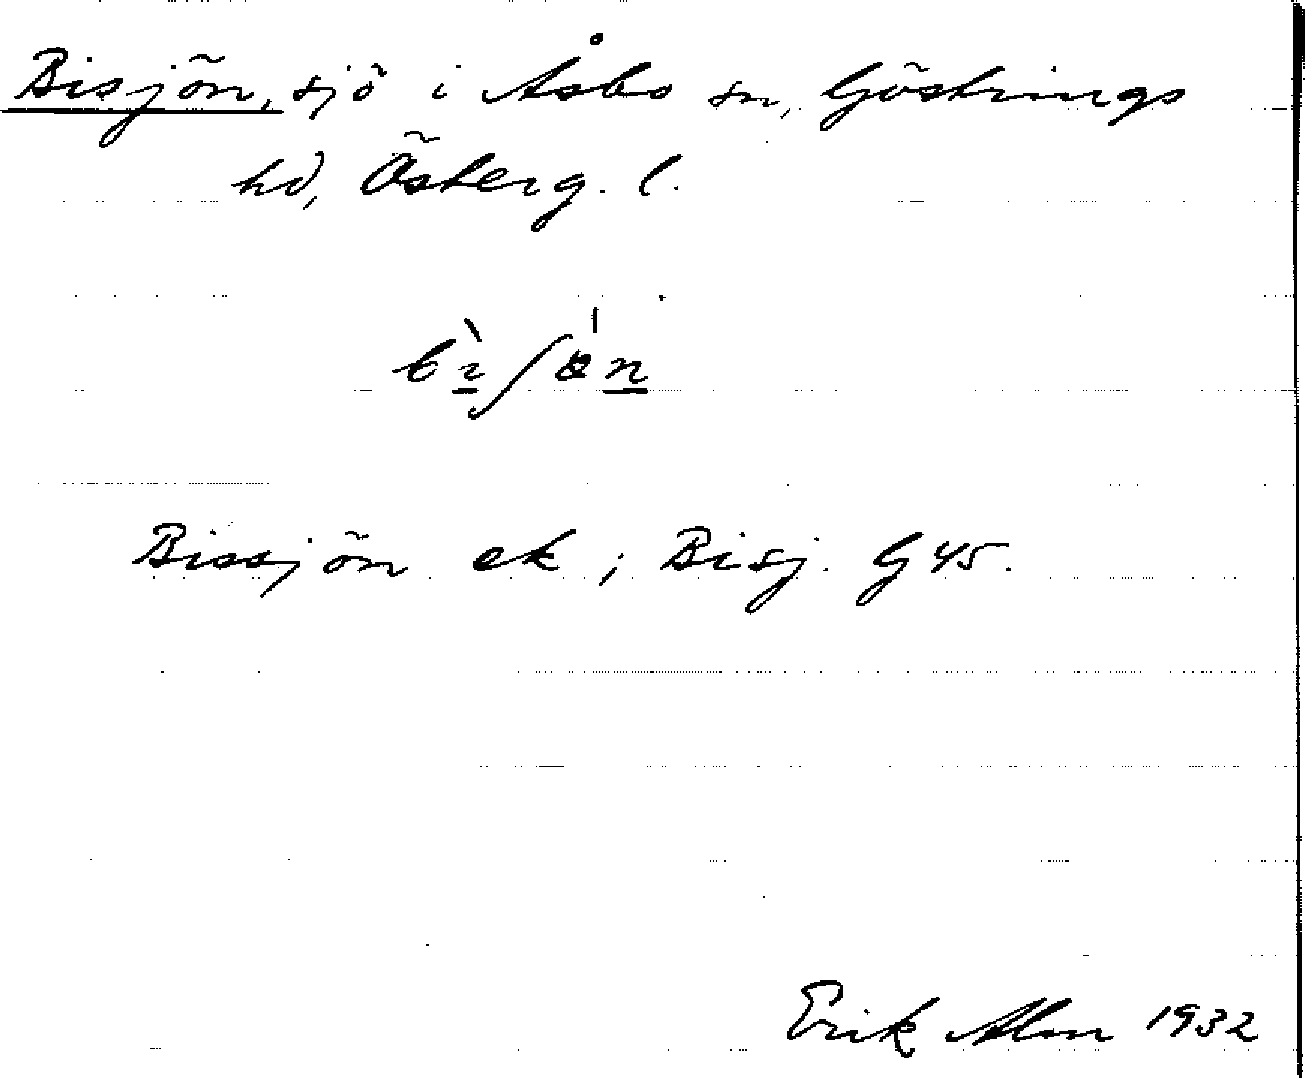 Bisjön, sjö i Åsbo sn, Göstrings
hd, Österg. l.
Bissjön ek; Bisj. G 45.
Erik Alm 1932